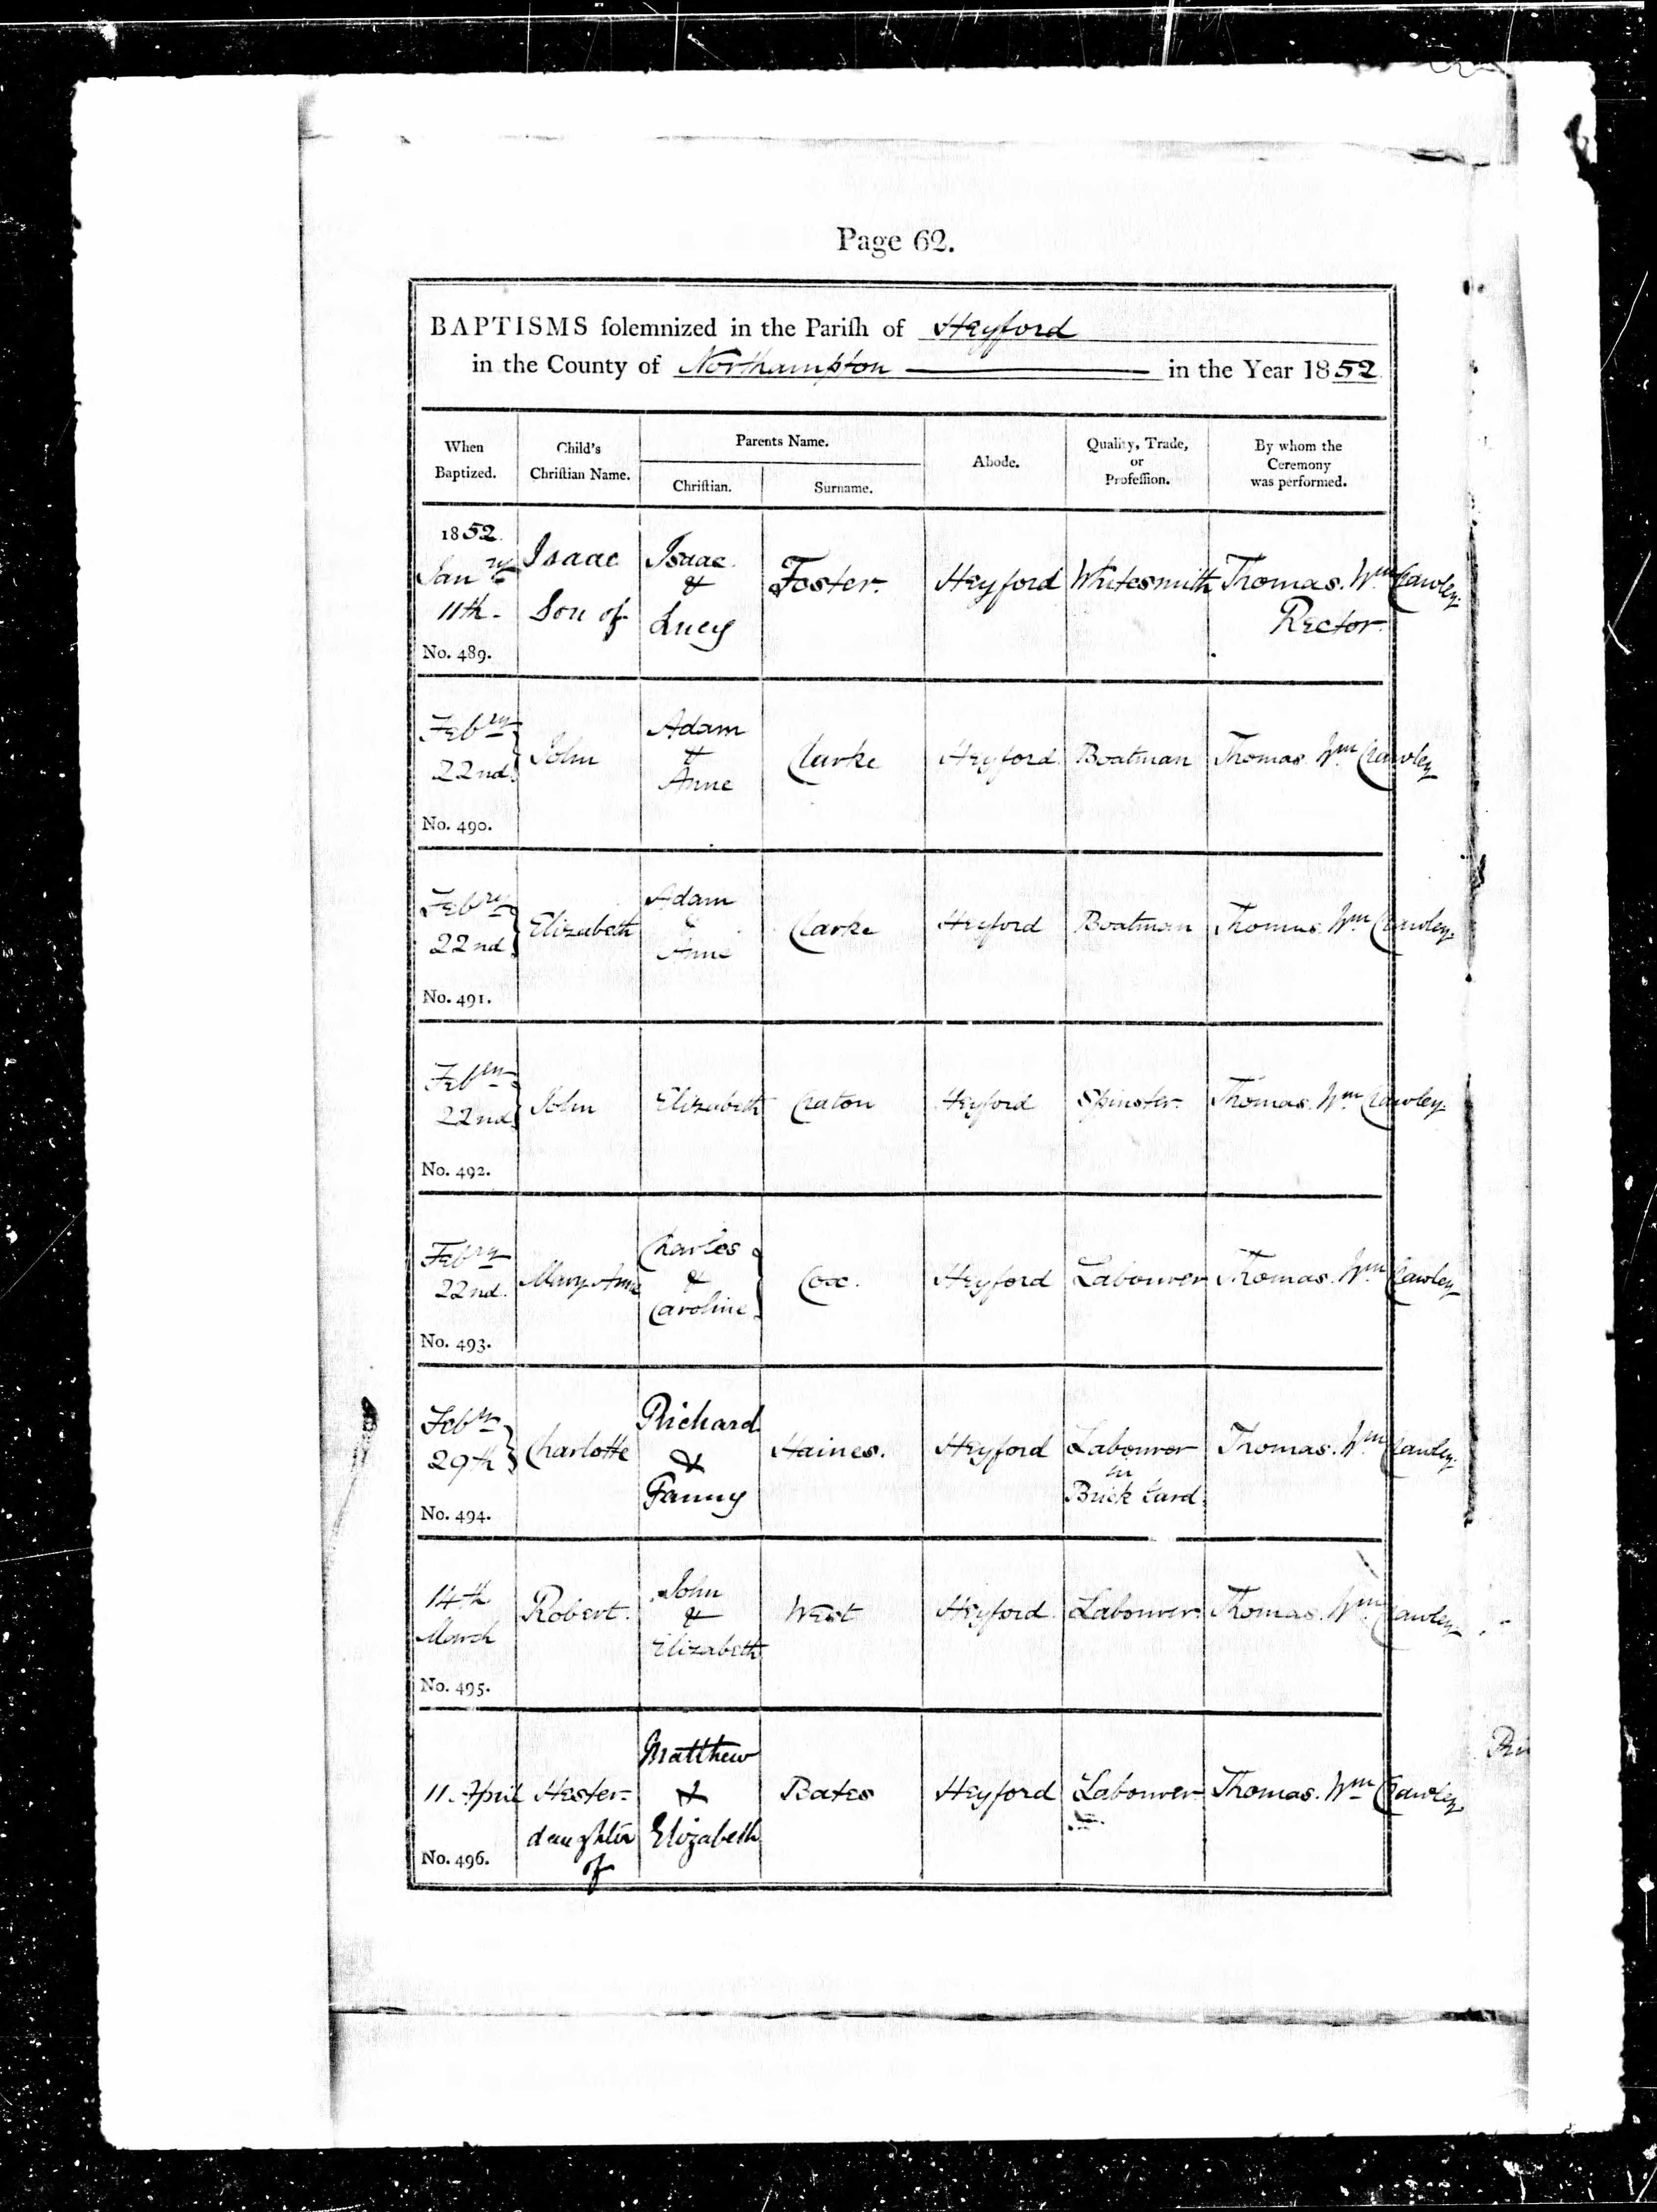 Page 62.
BAPTISMS ſolemnized in the Pariſh of Heyford
in the County of Northampton in the Year 1852
When
Baptized.
Child's
Chriſtian Name.
Parents Name.
Chriſtian.
Surname.
Abode.
Quality, Trade,
or
Profeſſion.
By whom the
Ceremony
was performed.
1852.
Janry
11th.
No. 489.
Isaac
Son of
Isaac
&
Lucy
Foster.
Heyford
Whitesmith
Thomas. Wm Crawley.
Rector.
Febry
22nd.
No. 490.
John
Adam
&
Anne
Clarke
Heyford
Boatman
Thomas. Wm Crawley
Febry
22nd
No. 491.
Elizabeth
Adam
&
Anne
Clarke
Heyford
Boatman
Thomas. Wm Crawley.
Febry
22nd
No. 492.
John
Elizabeth
Craton
Heyford
Spinster.
Thomas. Wm Crawley.
Febry
22nd.
No. 493.
Mary Anne
Charles
&
Caroline
Cox.
Heyford
Labourer
Thomas. Wm Crawley
Febry
29th
No. 494.
Charlotte
Richard
&
Fanny
Haines.
Heyford
Labourer
in
Brick Yard.
Thomas. Wm Crawley.
14th
March
No. 495.
Robert.
John
&
Elizabeth
West
Heyford.
Labourer.
Thomas. Wm Crawley
11. April
No. 496.
Hester
daughter
of
Matthew
&
Elizabeth
Bates
Heyford
Labourer
Thomas. Wm Crawley